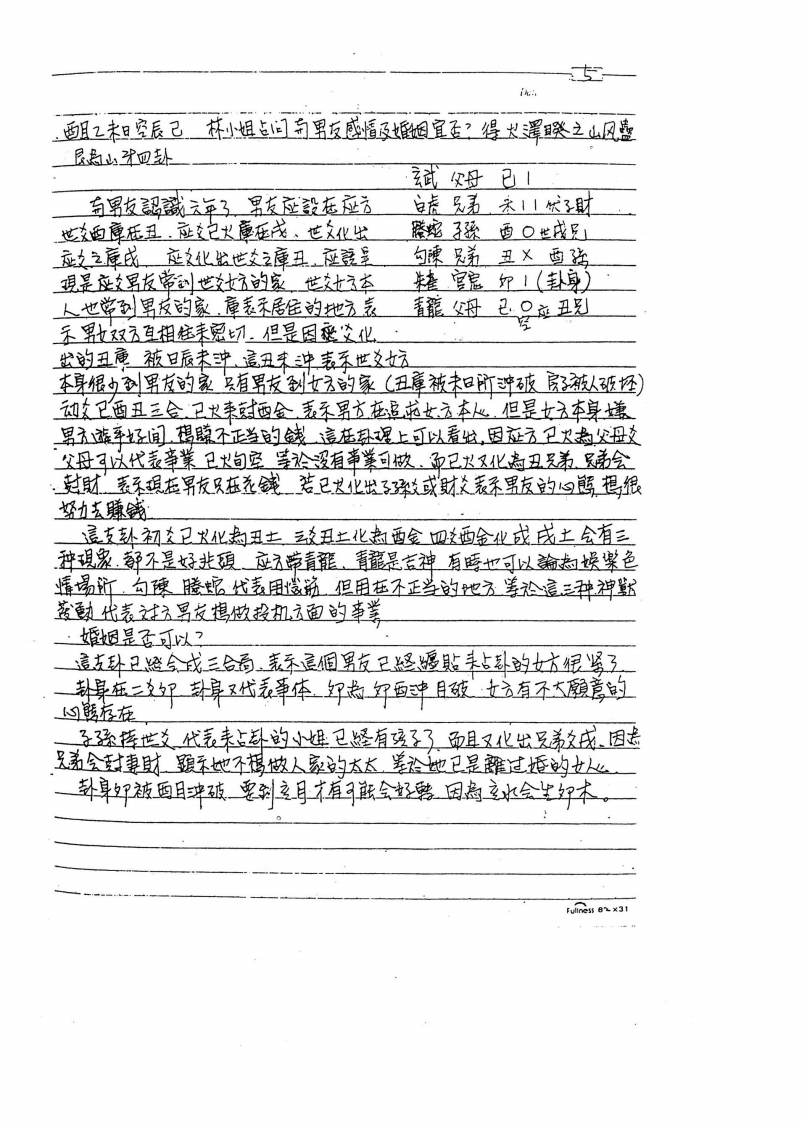 5
酉月乙未日空辰巳 林小姐占问与男友感情及婚姻宜否? 得火澤睽之山风蠱
艮為山第四卦
玄武 父母 巳 |
与男友認識六年了, 男友应設在应方 白虎 兄弟 未 || 伏子財
世爻酉庫在丑, 应爻巳火庫在戌、世爻化出 螣蛇 子孫 酉 O 世戌兄
应爻之庫戌 应爻化出世爻之庫丑, 应該是 勾陳 兄弟 丑 X 酉孫
現是应爻男友常到世爻女方的家, 世爻女方本 朱雀 官鬼 卯 | (卦身)
人也常到男友的家, 庫表示居住的地方表 青龍 父母 巳 O 应丑兄
空
示男女双方互相往来密切, 但是因应爻化
出的丑庫 被日辰未沖, 這丑未沖表示世爻女方
本身很少到男友的家 只有男友到女方的家 (丑庫被未日所沖破 房子被人破坏)
动爻巳酉丑三合, 巳火来討酉合, 表示男方在追求女方本人, 但是女方本身嫌
男方遊手好閒, 想賺不正当的錢, 這在卦理上可以看出, 因应方巳火為父母爻
父母可以代表事業 巳火旬空 等於沒有事業可做, 而巳火又化為丑兄弟, 兄弟会
尅財, 表示現在男友只在花錢 若巳火化出子孫爻或財爻表示男友的心態, 想很
努力去賺錢
這支卦初爻巳火化為丑土 三爻丑土化為酉金 四爻酉金化成戌土 会有三
种現象, 都不是好兆頭, 应方帶青龍, 青龍是吉神 有時也可以論為娛樂色
情場所, 勾陳 螣蛇 代表用腦筋, 但用在不正当的地方, 等於這三种神獸
發動代表对方男友想做投机方面的事業
婚姻是否可以?
這支卦已經合成三合局, 表示這個男友已經纏貼来占卦的女方很緊了
卦身在二爻卯 卦身又代表事体, 卯為 卯酉沖 月破 女方有不大願意的
心態存在
子孫持世爻 代表来占卦的小姐已經有孩子了 而且又化出兄弟爻戌、因為
兄弟会尅妻財, 顯示她不想做人家的太太, 等於她已是離过婚的女人,
卦身卯被酉日沖破, 要到亥月才有可能会好轉, 因為亥水会生卯木。
Fullness 82 x31